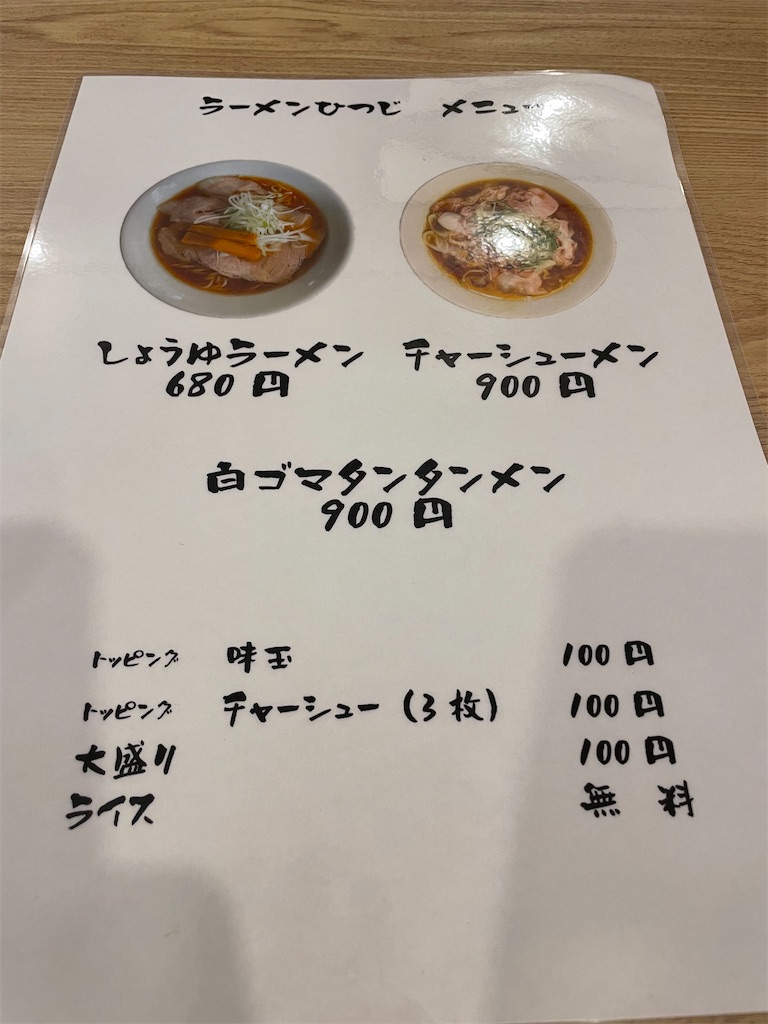 ラーメンひつじ　メニュー
しょうゆラーメン　チャーシューメン
680 円　900 円
白ゴマタンタンメン
900 円
トッピング　味玉　100 円
トッピング　チャーシュー（3 枚）　100 円
大盛り　100 円
ライス　無 料